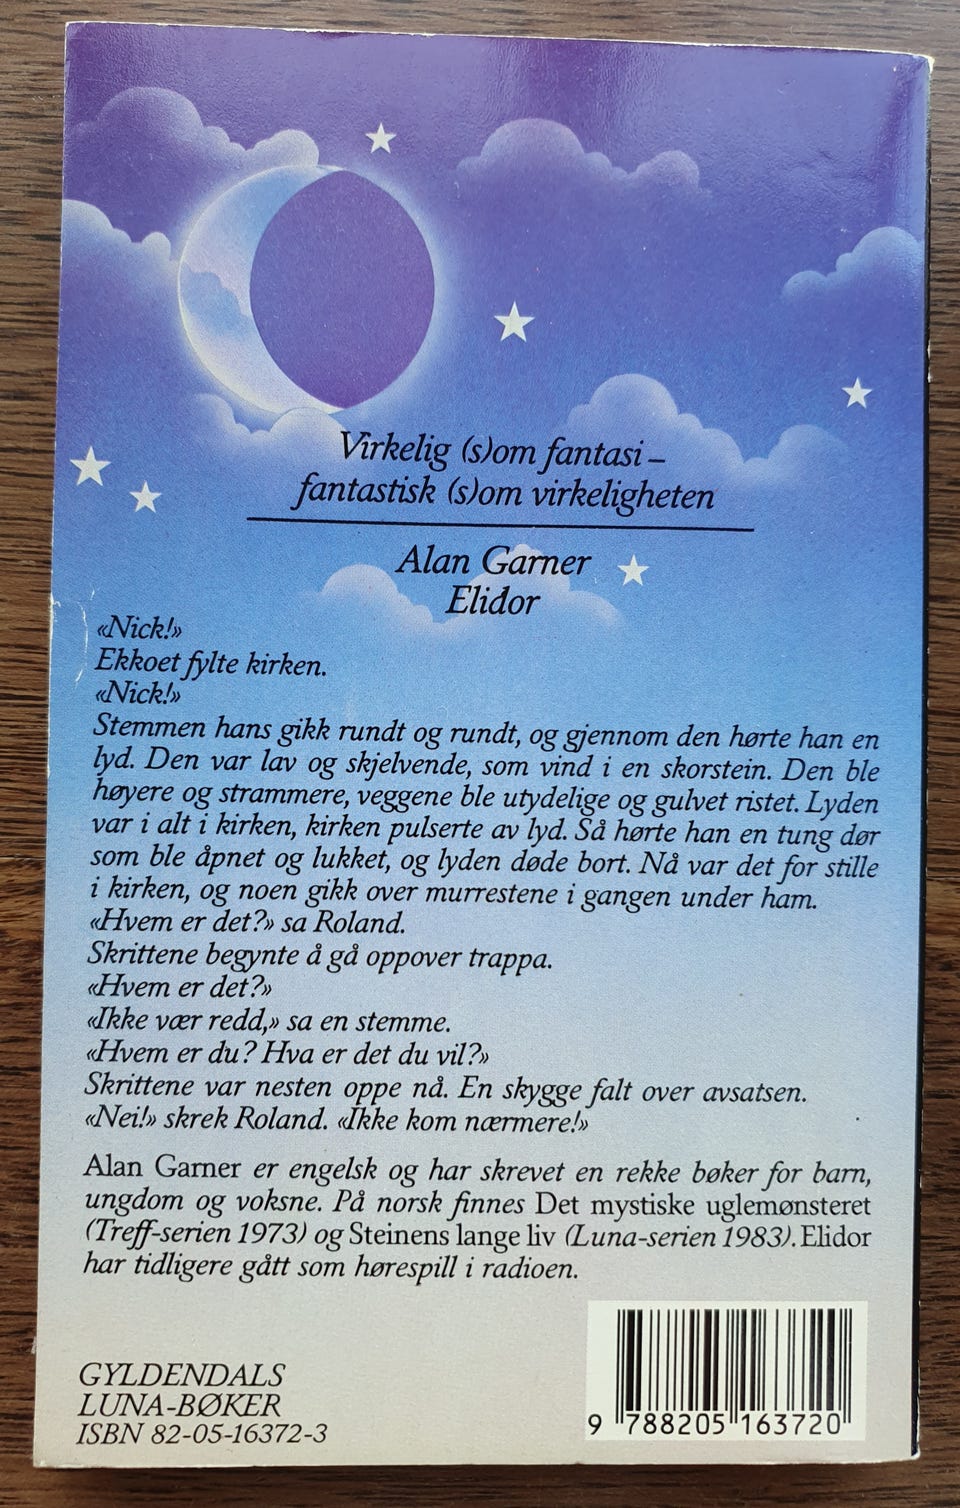 Virkelig (s)om fantasi –
fantastisk (s)om virkeligheten
Alan Garner
Elidor
«Nick!»
Ekkoet fylte kirken.
«Nick!»
Stemmen hans gikk rundt og rundt, og gjennom den hørte han en
lyd. Den var lav og skjelvende, som vind i en skorstein. Den ble
høyere og strammere, veggene ble utydelige og gulvet ristet. Lyden
var i alt i kirken, kirken pulserte av lyd. Så hørte han en tung dør
som ble åpnet og lukket, og lyden døde bort. Nå var det for stille
i kirken, og noen gikk over murrestene i gangen under ham.
«Hvem er det?» sa Roland.
Skrittene begynte å gå oppover trappa.
«Hvem er det?»
«Ikke vær redd,» sa en stemme.
«Hvem er du? Hva er det du vil?»
Skrittene var nesten oppe nå. En skygge falt over avsatsen.
«Nei!» skrek Roland. «Ikke kom nærmere!»
Alan Garner er engelsk og har skrevet en rekke bøker for barn,
ungdom og voksne. På norsk finnes Det mystiske uglemønsteret
(Treff-serien 1973) og Steinens lange liv (Luna-serien 1983). Elidor
har tidligere gått som hørespill i radioen.
GYLDENDALS
LUNA-BØKER
ISBN 82-05-16372-3
9 788205 163720